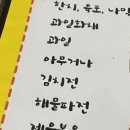 한치, 육포, 나막
과일화채
과일
아무거나
김치전
해물파전
제육볶음